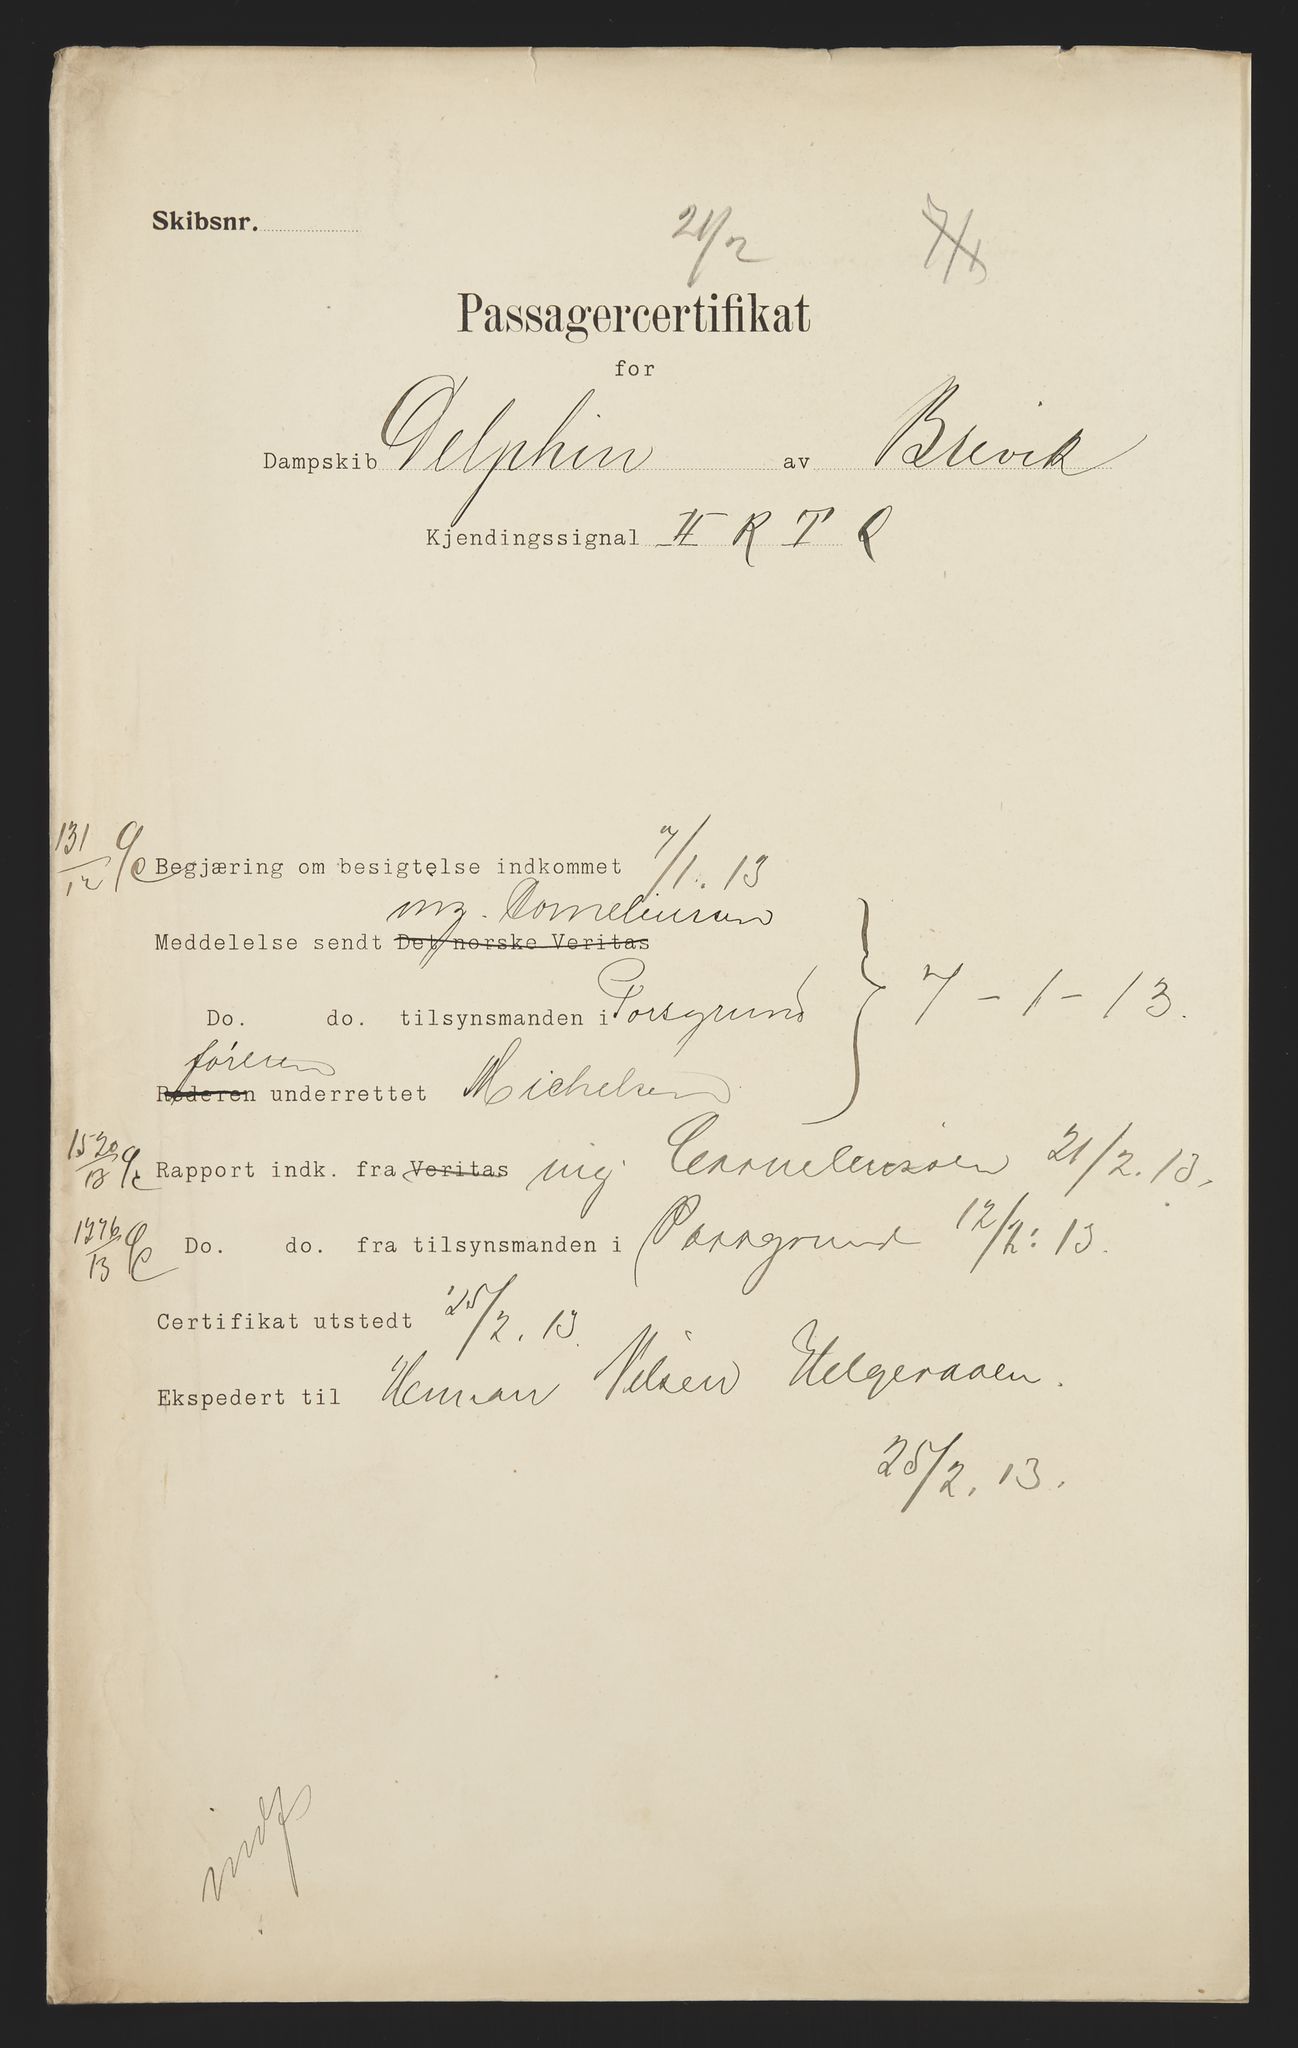 Skibsnr.
21/2
7/1
Passagercertifikat
for
Dampskib Delphin av Brevik
Kjendingssignal H R T Q
131/12 Begjæring om besigtelse indkommet 7/1. 13
ing. Corneliussen
Meddelelse sendt Det norske Veritas
Do. do. tilsynsmanden i Porsgrund 7 - 1 - 13.
føreren
Rederen underrettet Michelsen
1520/13 Rapport indk. fra Veritas ing. Corneliussen 21/2. 13.
1276/13 Do. do. fra tilsynsmanden i Porsgrund 12/2. 13.
Certifikat utstedt 25/2. 13.
Ekspedert til Herman Nilsen Helgeraaen.
25/2. 13.
indf